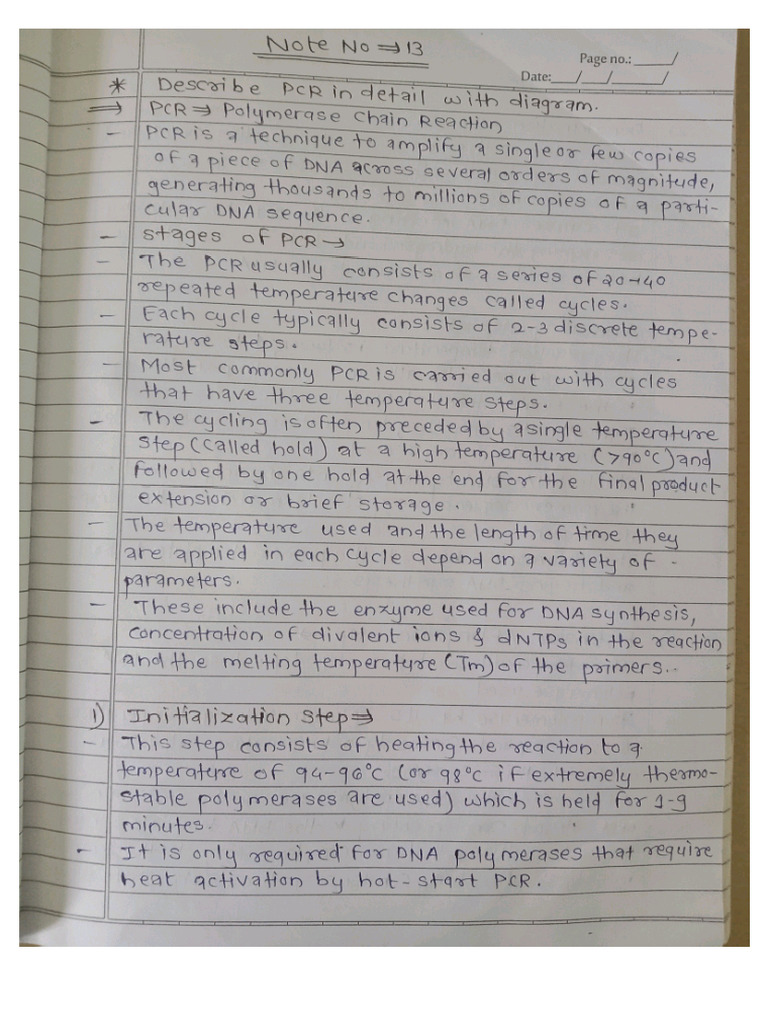 Note No ⇒ 13
Page no.: /
Date: / / /
* Describe PCR in detail with diagram.
⇒ PCR ⇒ Polymerase Chain Reaction
- PCR is a technique to amplify a single or few copies
of a piece of DNA across several orders of magnitude,
generating thousands to millions of copies of a parti-
cular DNA sequence.
- stages of PCR →
- The PCR usually consists of a series of 20-40
repeated temperature changes called cycles.
- Each cycle typically consists of 2-3 discrete tempe-
rature steps.
- Most commonly PCR is carried out with cycles
that have three temperature steps.
- The cycling is often preceded by a single temperature
step (called hold) at a high temperature (>90°C) and
followed by one hold at the end for the final product
extension or brief storage.
- The temperature used and the length of time they
are applied in each cycle depend on a variety of -
parameters.
- These include the enzyme used for DNA synthesis,
concentration of divalent ions & dNTPs in the reaction
and the melting temperature (Tm) of the primers.
1) Initialization step ⇒
- This step consists of heating the reaction to a
temperature of 94-96°C (or 98°C if extremely thermo-
stable polymerases are used) which is held for 1-9
minutes.
- It is only required for DNA polymerases that require
heat activation by hot-start PCR.